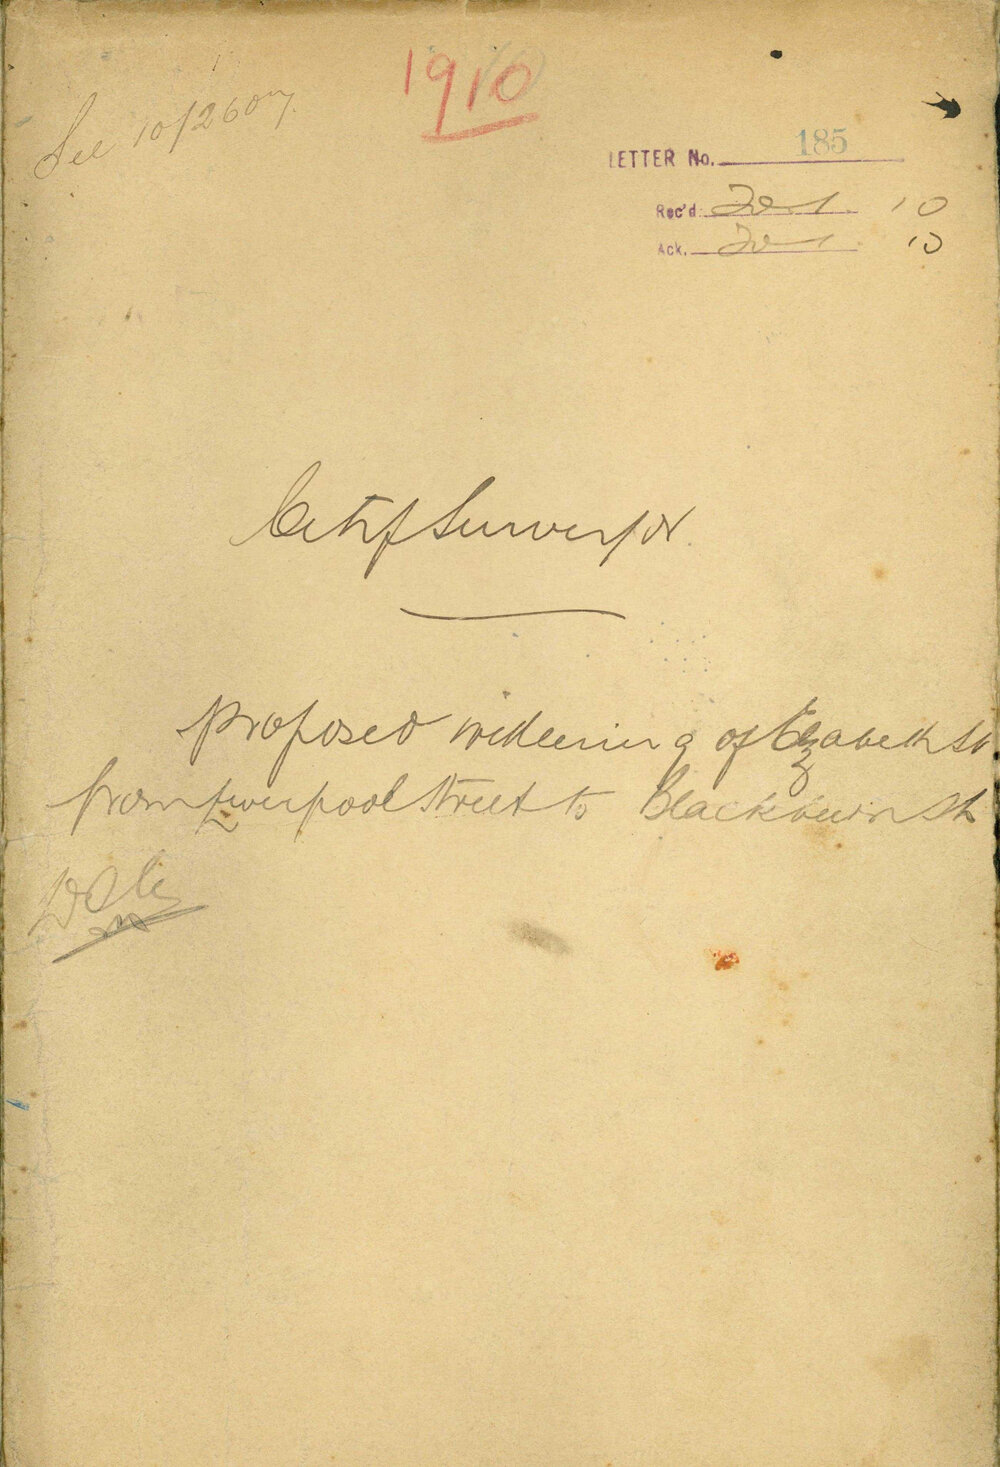 1910
See 10/2607
LETTER No. 185
Rec'd 10
Ack. 10
City Surveyor
Proposed widening of Elizabeth St
from Liverpool Street to Blackburn St